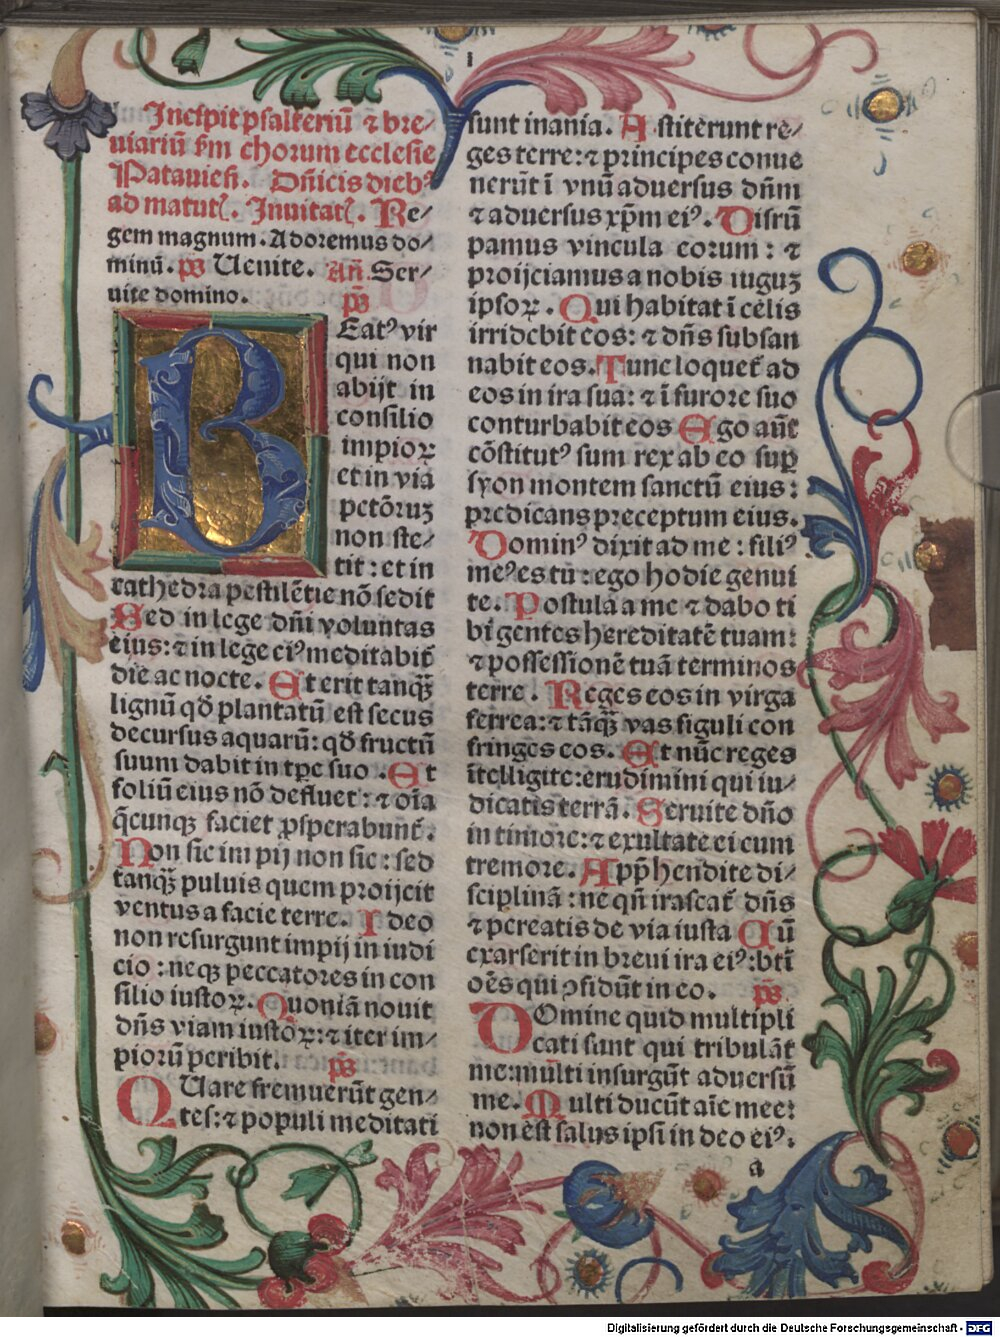 Incipit psalteriū ⁊ bre⸗
uiariū ẜm chorum ecclesie
Patauieñ. Dn̄icis diebꝰ
ad matut̉. Inuitat̉. Re⸗
gem magnum. Adoremus do⸗
minū. p̄s Uenite. Añ. Ser⸗
uite domino. p̄s
BEatꝰ vir
qui non
abijt in
consilio
impioꝝ
et in via
pctōruꝫ
non ste⸗
tit : et in
cathedra pestilētie nō sedit
Sed in lege dn̄i voluntas
eius: ⁊ in lege eiꝰ meditabit᷑
die ac nocte. Et erit tanqꝫ̄
lignū qđ plantatū est secus
decursus aquarū: qđ fructū
suum dabit in tp̄e suo. Et
foliū eius nō defluet: ⁊ oīa
q̄cunqꝫ faciet ꝓsperabunt᷑.
Non sic impij non sic : sed
tanqꝫ̄ puluis quem proijcit
ventus a facie terre. Ideo
non resurgunt impij in iudi
cio : neqꝫ peccatores in con
silio iustoꝝ. Quoniā nouit
dn̄s viam iustoꝝ: ⁊ iter im⸗
piorū peribit. p̄s
QUare fremuerūt gen⸗
tes: ⁊ populi meditati
sunt inania. Astiterunt re⸗
ges terre: ⁊ principes conue
nerūt ī vnū aduersus dn̄m
⁊ aduersus xp̄m eiꝰ. Disrū
pamus vincula eorum : ⁊
proijciamus a nobis iuguꝫ
ipsoꝝ. Qui habitat ī celis
irridebit eos: ⁊ dn̄s subsan
nabit eos. Tunc loquet᷑ ad
eos in ira sua: ⁊ ī furore suo
conturbabit eos Ego aūt
cōstitutꝰ sum rex ab eo suꝑ
syon montem sanctū eius :
predicans preceptum eius.
Dominꝰ dixit ad me : filiꝰ
meꝰ es tu : ego hodie genui
te. Postula a me ⁊ dabo ti
bi gentes hereditatē tuam:
⁊ possessionē tuā terminos
terre. Reges eos in virga
ferrea: ⁊ tāqꝫ̄ vas figuli con
fringes eos. Et nūc reges
ītelligite: erudimini qui iu⸗
dicatis terrā. Seruite dn̄o
in timore: ⁊ exultate ei cum
tremore. Appr̄hendite di⸗
sciplinā : ne qn̄ irascat᷑ dn̄s
⁊ pereatis de via iusta Cū
exarserit in breui ira eiꝰ: bt̄i
oēs qui ꝯfidūt in eo. p̄s
DOmine quid multipli
cati sunt qui tribulāt
me: multi insurgūt aduersū
me. Multi dicūt aīe mee:
non est salus ipsi in deo eiꝰ.
a
Digitalisierung gefördert durch die Deutsche Forschungsgemeinschaft - DFG